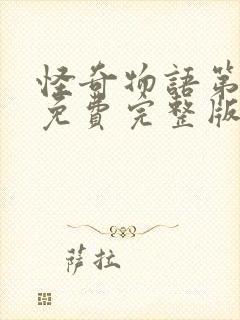 怪奇物語第
免費完整版
萨拉